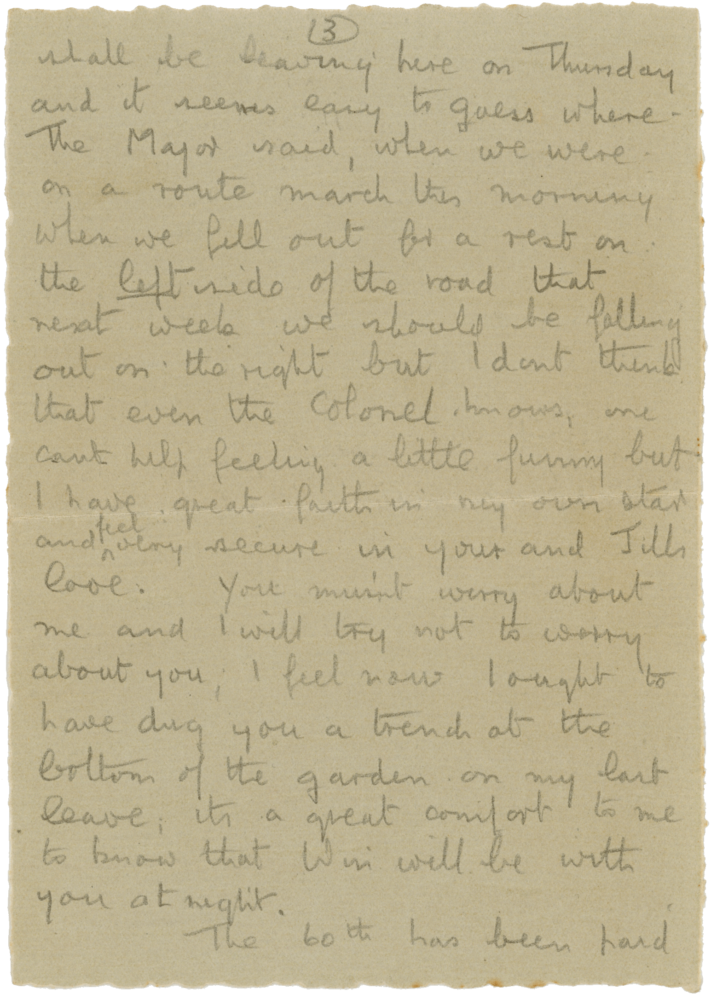 (3)
shall be leaving here on Thursday
and it seems easy to guess where -
The Major said, when we were
on a route march this morning
when we fell out for a rest on
the left side of the road that
next week we should be falling
out on the right but I dont think
that even the Colonel knows, one
cant help feeling a little funny but
I have great faith in my own star
and feel very secure in your and Jills
love. You musn't worry about
me and I will try not to worry
about you; I feel now I ought to
have dug you a trench at the
bottom of the garden on my last
leave; its a great comfort to me
to know that Win will be with
you at night.
The 60th has been paid